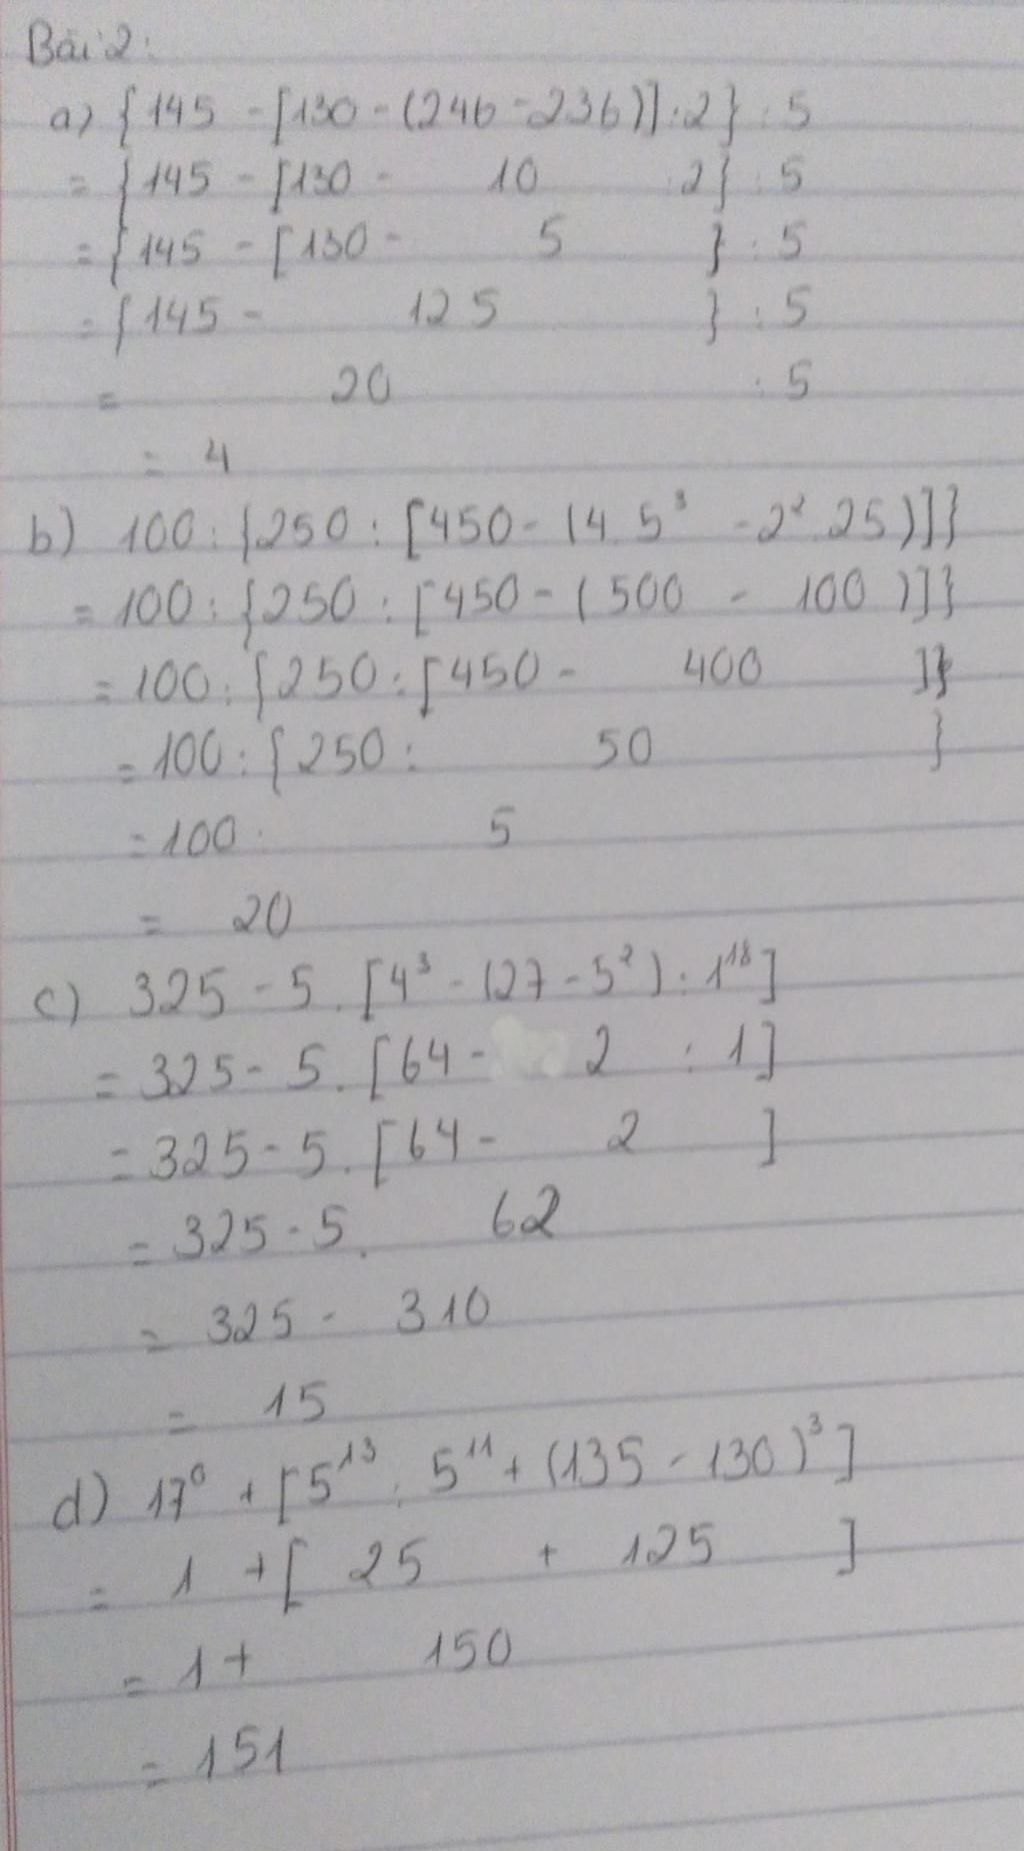 Bài 2:
a) {145 - [130 - (246 - 236)] : 2} : 5
= {145 - [130 - 10 : 2} : 5
= {145 - [130 - 5 } : 5
= {145 - 125 } : 5
= 20 : 5
= 4
b) 100 : {250 : [450 - (4 . 5³ - 2² . 25)]}
= 100 : {250 : [450 - (500 - 100)]}
= 100 : {250 : [450 - 400 ]}
= 100 : {250 : 50 }
= 100 : 5
= 20
c) 325 - 5 . [4³ - (27 - 5²) : 1¹⁸]
= 325 - 5 . [64 - 2 : 1]
= 325 - 5 . [64 - 2 ]
= 325 - 5 . 62
= 325 - 310
= 15
d) 17⁰ + [5¹³ : 5¹¹ + (135 - 130)³]
= 1 + [ 25 + 125 ]
= 1 + 150
= 151